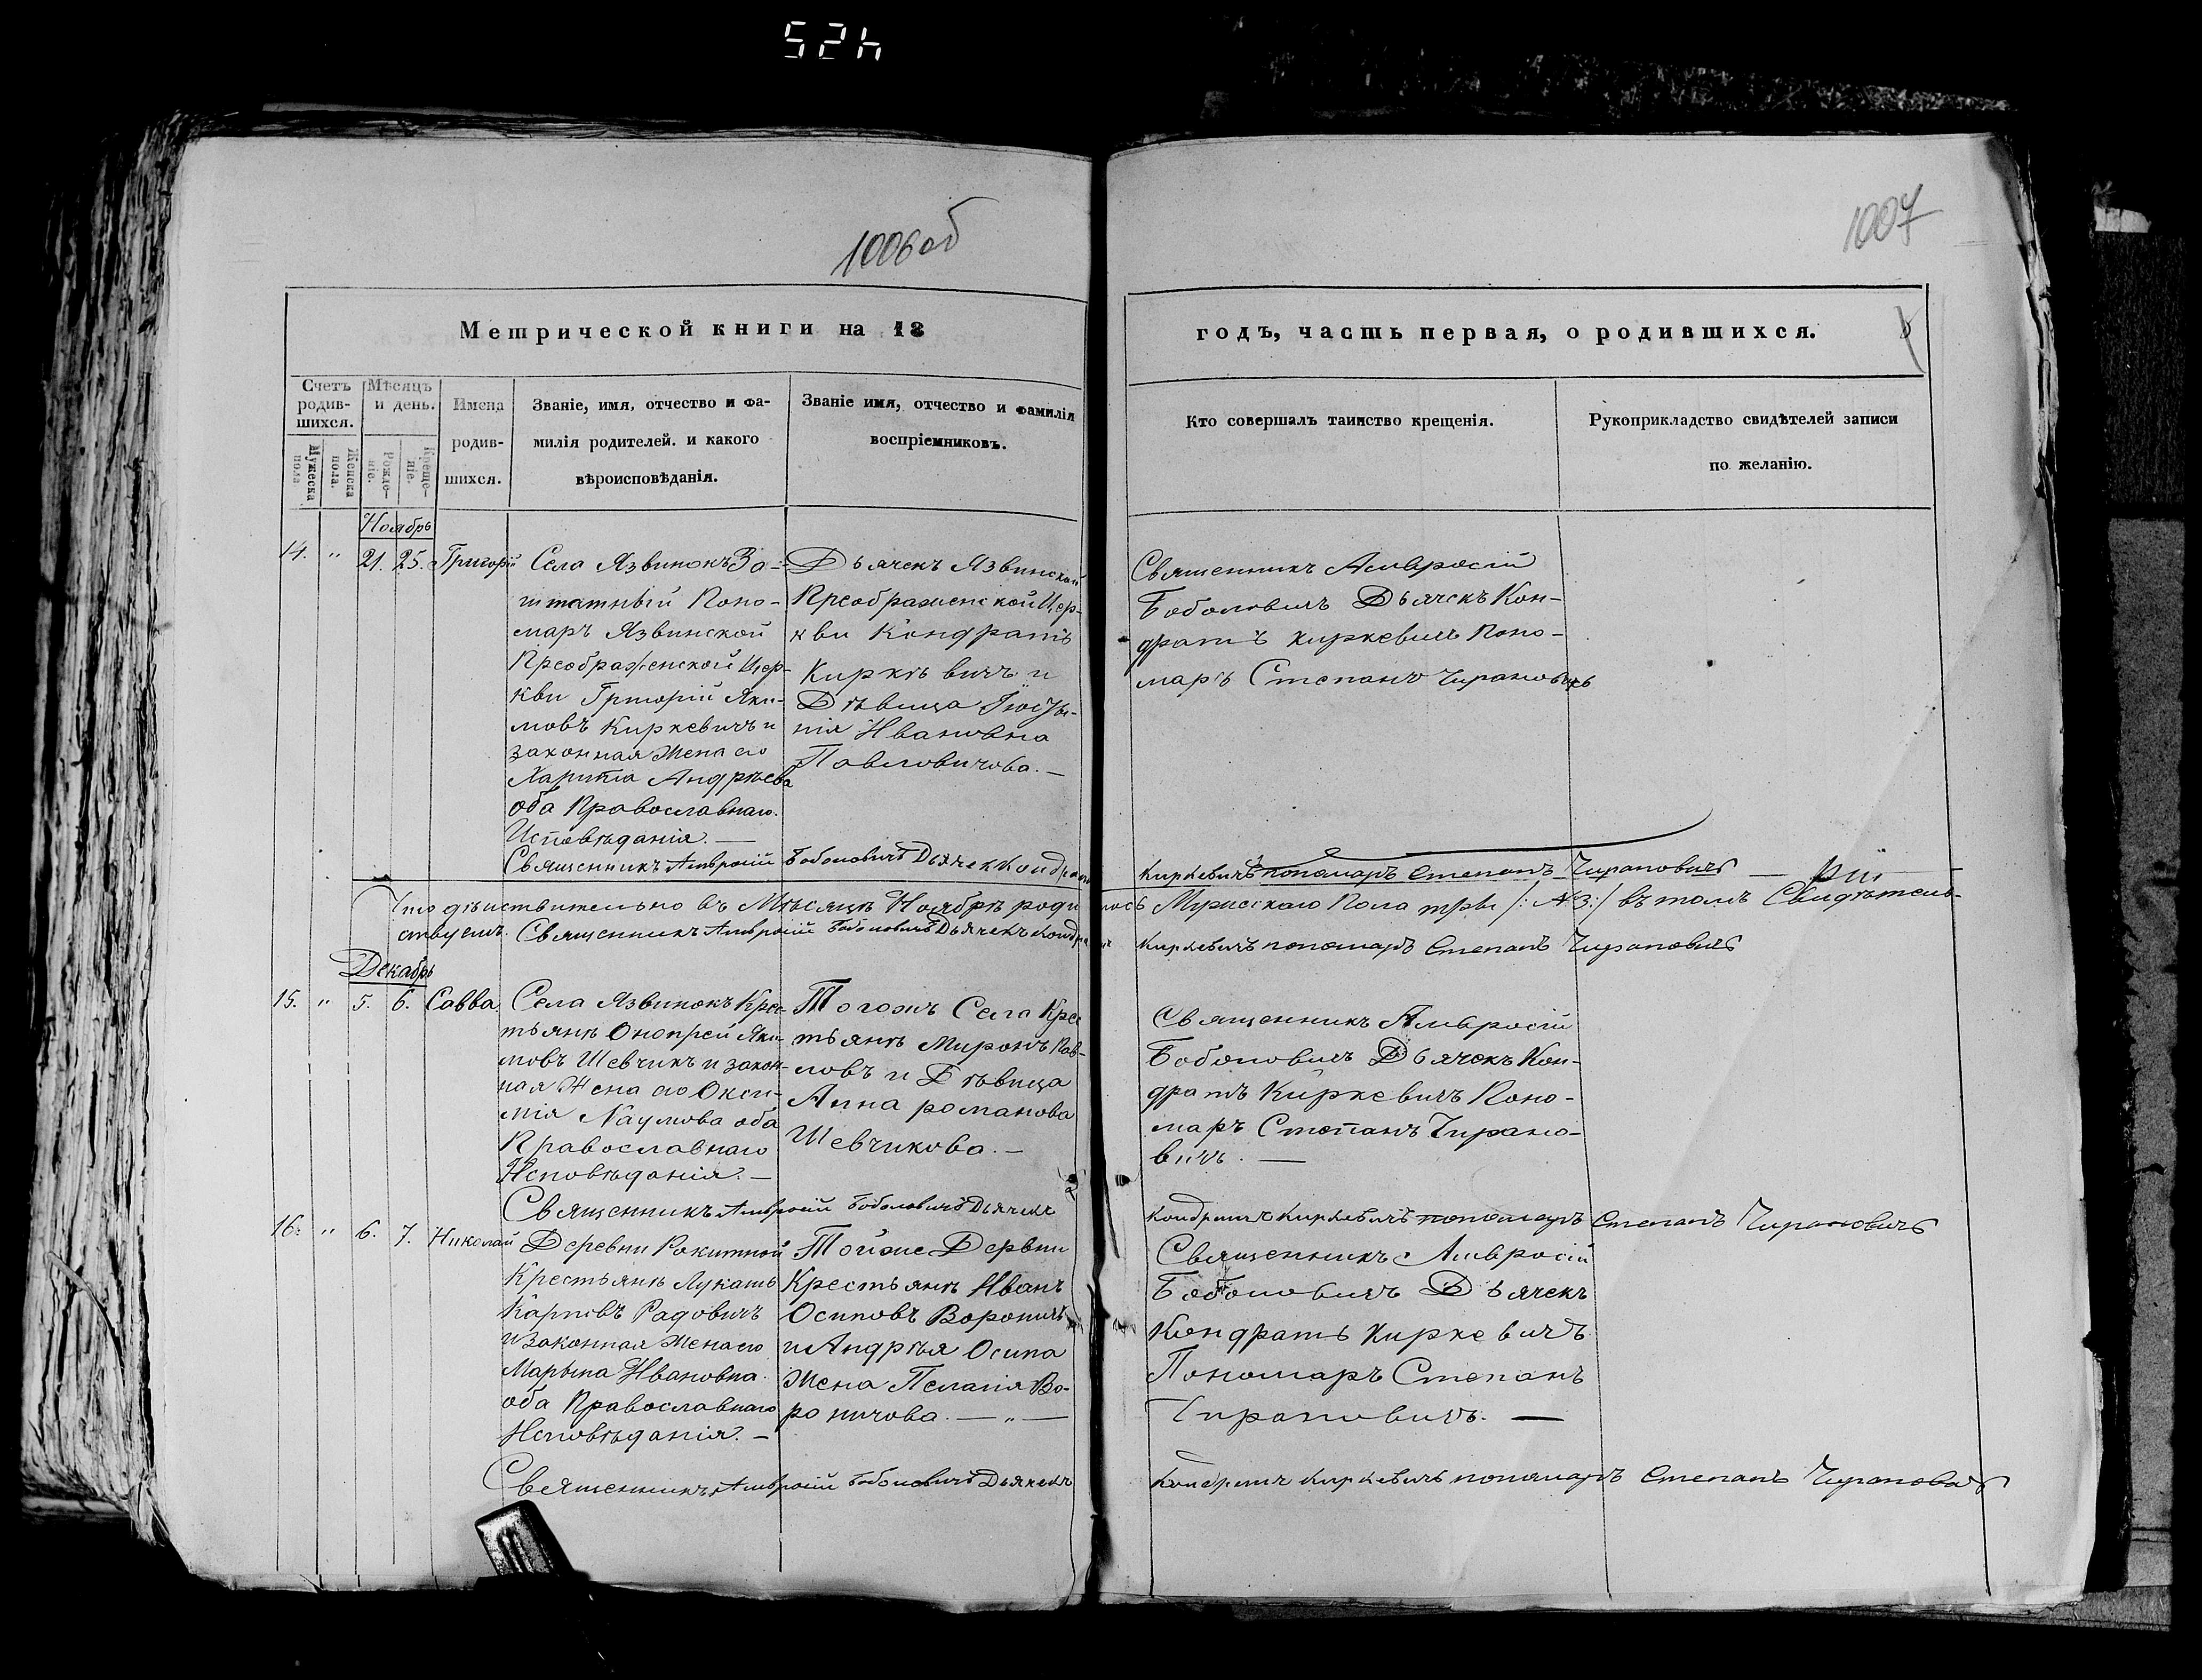 524
1006об
1007
Метрической книги на 18
годъ, часть первая, о родившихся.
Счетъ родив-шихся.
Мужеска пола
Женска пола.
Мѣсяцъ и день.
Рожде-ніе.
Креще-ніе.
Имена родив-шихся.
Званіе, имя, отчество и фа-
милія родителей. и какого
вѣроисповѣданія.
Званіе имя, отчество и фамилія
воспріемниковъ.
Кто совершалъ таинство крещенія.
Рукоприкладство свидѣтелей записи
по желанію.
Ноябрь
14. " 21. 25. Григорій
Села Язвинокъ За-
штатный Поно-
маръ Язвинской
Преображенской Цер-
кви Григорій Яки-
мовъ Киркевичъ и
законная Жена его
Харитіа Андрѣева
оба Православнаго
Исповѣданія. —
Дьячекъ Язвинской
Преображенской Цер-
кви Кондратъ
Киркѣвичъ и
Дѣвица
Ивановна
Павловичова. —
Священникъ Амвросій
Боболовичъ Дьячекъ Кон-
дратъ Киркевичъ Поно-
маръ Степанъ Чирановичъ
Священникъ Амвросій Боболовичъ Дьячекъ Кондратъ Киркевичъ пономаръ Степанъ Чирановичъ
Что дѣиствительно въ Мѣсяцѣ Ноябрѣ родилось Мужескаго Пола три /: №3:/ въ томъ Свидѣтель-
ствуемъ. Священникъ Амвросій Боболовичъ Дьячекъ Кондратъ Киркевичъ пономаръ Степанъ Чирановичъ
Декабрь
15. " 5. 6. Савва
Села Язвинокъ Крес-
тьянъ Онопрей Яки-
мовъ Шевчикъ и закон-
ная Жена его Окси-
нія Наумова оба
Православнаго
Исповѣданія. —
Тогожъ Села Крес
тьянъ Миронъ Пав-
ловъ и Дѣвица
Анна романова
Шевчикова. —
Священникъ Амвросій
Боболовичъ Дьячекъ Кон-
дратъ Киркевичъ Поно-
маръ Степанъ Чирано-
вичъ. —
Священникъ Амвросій Боболовичъ Дьячекъ Кондратъ Киркевичъ пономаръ Степанъ Чирановичъ
16. " 6. 7. Николай
Деревни Рокитной
Крестьянъ Лукашъ
Карповъ Радовичъ
и Законная Жена его
Марьяна Ивановна
оба Православнаго
Исповѣданія. —
Тойже Дервни
Крестьянъ Иванъ
Осиповъ Вороничъ
и Андрѣя Осипа
Жена Пелагія Во-
роничова. — " —
Священникъ Амвросій
Боболовичъ Дьячекъ
Кондратъ Киркевичъ
Пономаръ Степанъ
Чирановичъ. —
Священникъ Амвросій Боболовичъ Дьячекъ Кондратъ Киркевичъ пономаръ Степанъ Чирановичъ